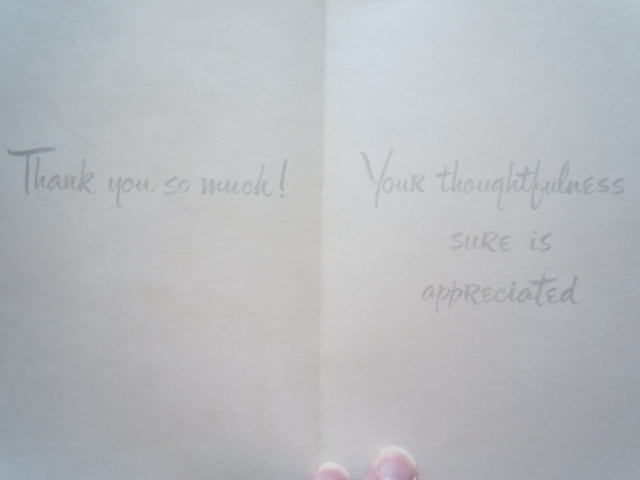 Thank you so much!
Your thoughtfulness
sure is
appreciated